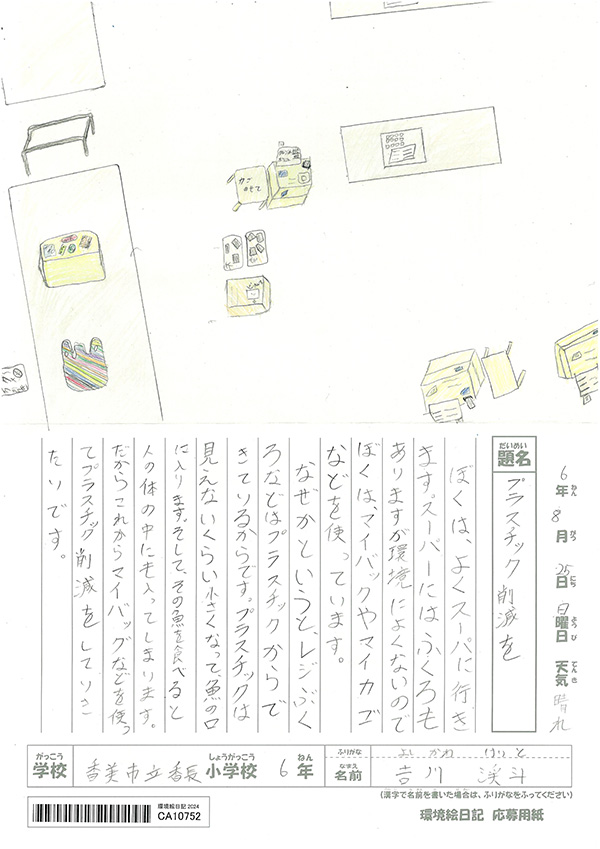 かご
のせて
6年 8月 25日 日曜日 天気 晴れ
ねん がつ にち ようび てんき
だいめい
題名
プラスチック削減を
ぼくは、よくスーパに行き
ます。スーパーにはふくろも
ありますが環境によくないので
ぼくは、マイバックやマイカゴ
などを使っています。
なぜかというと、レジぶく
ろなどはプラスチックからで
きているからです。プラスチックは
見えないくらい小さくなって、魚の口
に入ります。そして、その魚を食べると
人の体の中にも入ってしまります。
だからこれからマイバッグなどを使っ
てプラスチック削減をしていき
たいです。
がっこう
学校
香美市立香長
しょうがっこう
小学校
6年
ねん
ふりがな
よし かわ けい と
なまえ
名前
吉川 渓斗
(漢字で名前を書いた場合は、ふりがなをふってください)
環境絵日記 2024
CA10752
環境絵日記 応募用紙